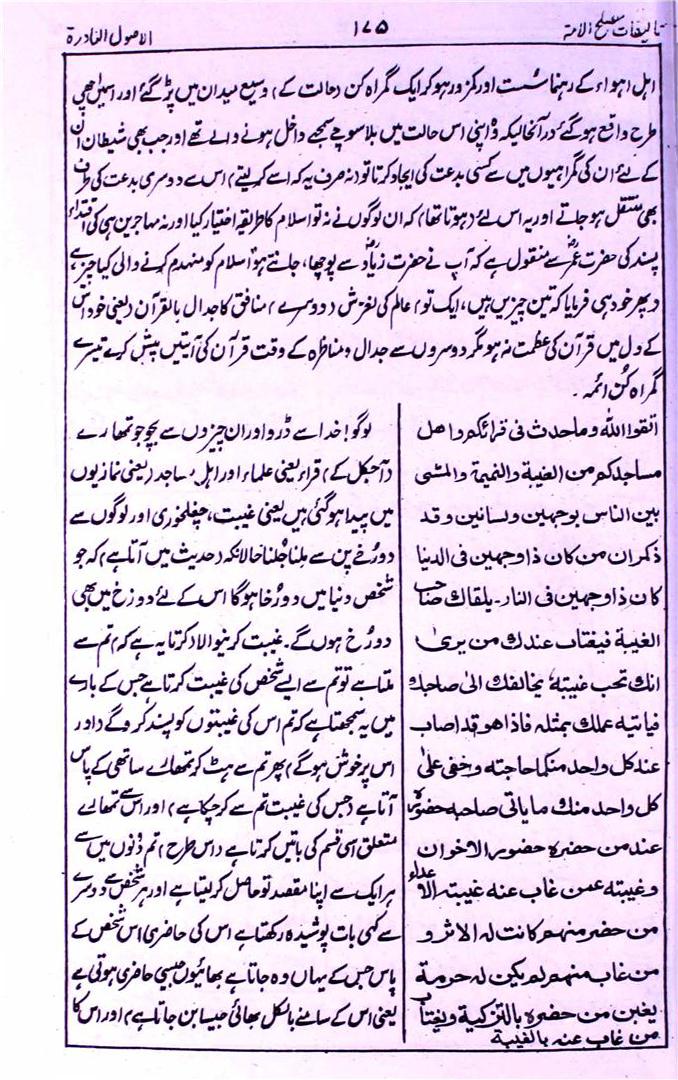 تالیفات مصلح الامۃ
۱۷۵
الاصول النادرۃ
اہل اہواء کے رہنما سُست اور کمزور ہوکر ایک گمراہ کن (حالت کے) وسیع میدان میں پڑ گئے اور اسمیں اچھی
طرح واقع ہوگئے درآنحالیکہ وہ اپنی اس حالت میں بلا سوچے سمجھے داخل ہونے والے تھے اور جب بھی شیطان ان
کے لئے ان کی گمراہیوں میں سے کسی بدعت کی ایجاد کرتا تو (نہ صرف یہ کہ اسے کرلیتے) اس سے دوسری بدعت کی طرف
بھی منتقل ہوجاتے اور یہ اس لئے (ہوتا تھا) کہ ان لوگوں نے نہ تو اسلام کا طریقہ اختیار کیا اور نہ مہاجرین ہی کی اقتداء
پسند کی حضرت عمرؓ سے منقول ہے کہ آپ نے حضرت زیادؓ سے پوچھا، جانتے ہو اسلام کو منہدم کرنے والی کیا چیز ہے
(پھر خود ہی فرمایا کہ تین چیزیں ہیں، ایک تو) عالم کی لغزش (دوسرے) منافق کا جدال بالقرآن (یعنی خود اس
کے دل میں قرآن کی عظمت نہ ہو مگر دوسروں سے جدال و مناظرہ کے وقت قرآن کی آیتیں پیش کرے تیسرے
گمراہ کُن ائمہ۔
اتقوا اللہ وما حدث فی قرائکم واھل
مساجدکم من الغیبة والنمیة والمشی
بین الناس بوجھین ولسانین وقد
ذکر ان من کان ذا وجھین فی الدنیا
کان ذا وجھین فی النار۔ یلقاك صاحب
الغیبة فیغتاب عندك من یریٰ
انك تحب غیبته، یخالفك الیٰ صاحبك
فیاتیه عنك بمثله فاذا ھو قد اصاب
عند کل واحد منکما حاجته وخفی علیٰ
کل واحد منك ما یاتی صاحبه حضورہ
عند من حضرہ حضور الاخوان
وغیبته عمن غاب عنه غیبته الاعداء
من حضر منھم کانت له الاثرو
من غاب منھم لم یکن له حرمة
یغبن من حضرہ بالتزکیة ویغتاب
من غاب عنه بالغیبة
لوگو! خدا سے ڈرو اور ان چیزوں سے بچو جو تمہارے
(آجکل کے) قراء یعنی علماء اور اہل مساجد (یعنی نمازیوں
میں پیدا ہوگئی ہیں یعنی غیبت، چغلخوری اور لوگوں سے
دورُخے پن سے ملنا جلنا حالانکہ (حدیث میں آتا ہے) کہ جو
شخص دنیا میں دورُخا ہوگا اس کے لئے دوزخ میں بھی
دو رُخ ہوں گے۔ غیبت کرنیوالا (کرتا یہ ہے کہ) تم سے
ملتا ہے تو تم سے ایسے شخص کی غیبت کرتا ہے جس کے بارے
میں یہ سمجھتا ہے کہ تم اس کی غیبتوں کو پسند کرو گے (اور
اس پر خوش ہوگے) پھر تم سے ہٹ کر تمہارے ساتھی کے پاس
آتا ہے (جس کی غیبت تم سے کرچکا ہے) اور اس سے تمہارے
متعلق اسی قسم کی باتیں کرتا ہے (اس طرح) تم دونوں میں سے
ہر ایک سے اپنا مقصد تو حاصل کرلیتا ہے اور ہر شخص سے دوسرے
سے کہی بات پوشیدہ رکھتا ہے اس کی حاضری اس شخص کے
پاس جس کے یہاں وہ جاتا ہے بھائیوں جیسی حاضری ہوتی ہے
یعنی اس کے سامنے بالکل بھائی جیسا بن جاتا ہے) اور اس کا